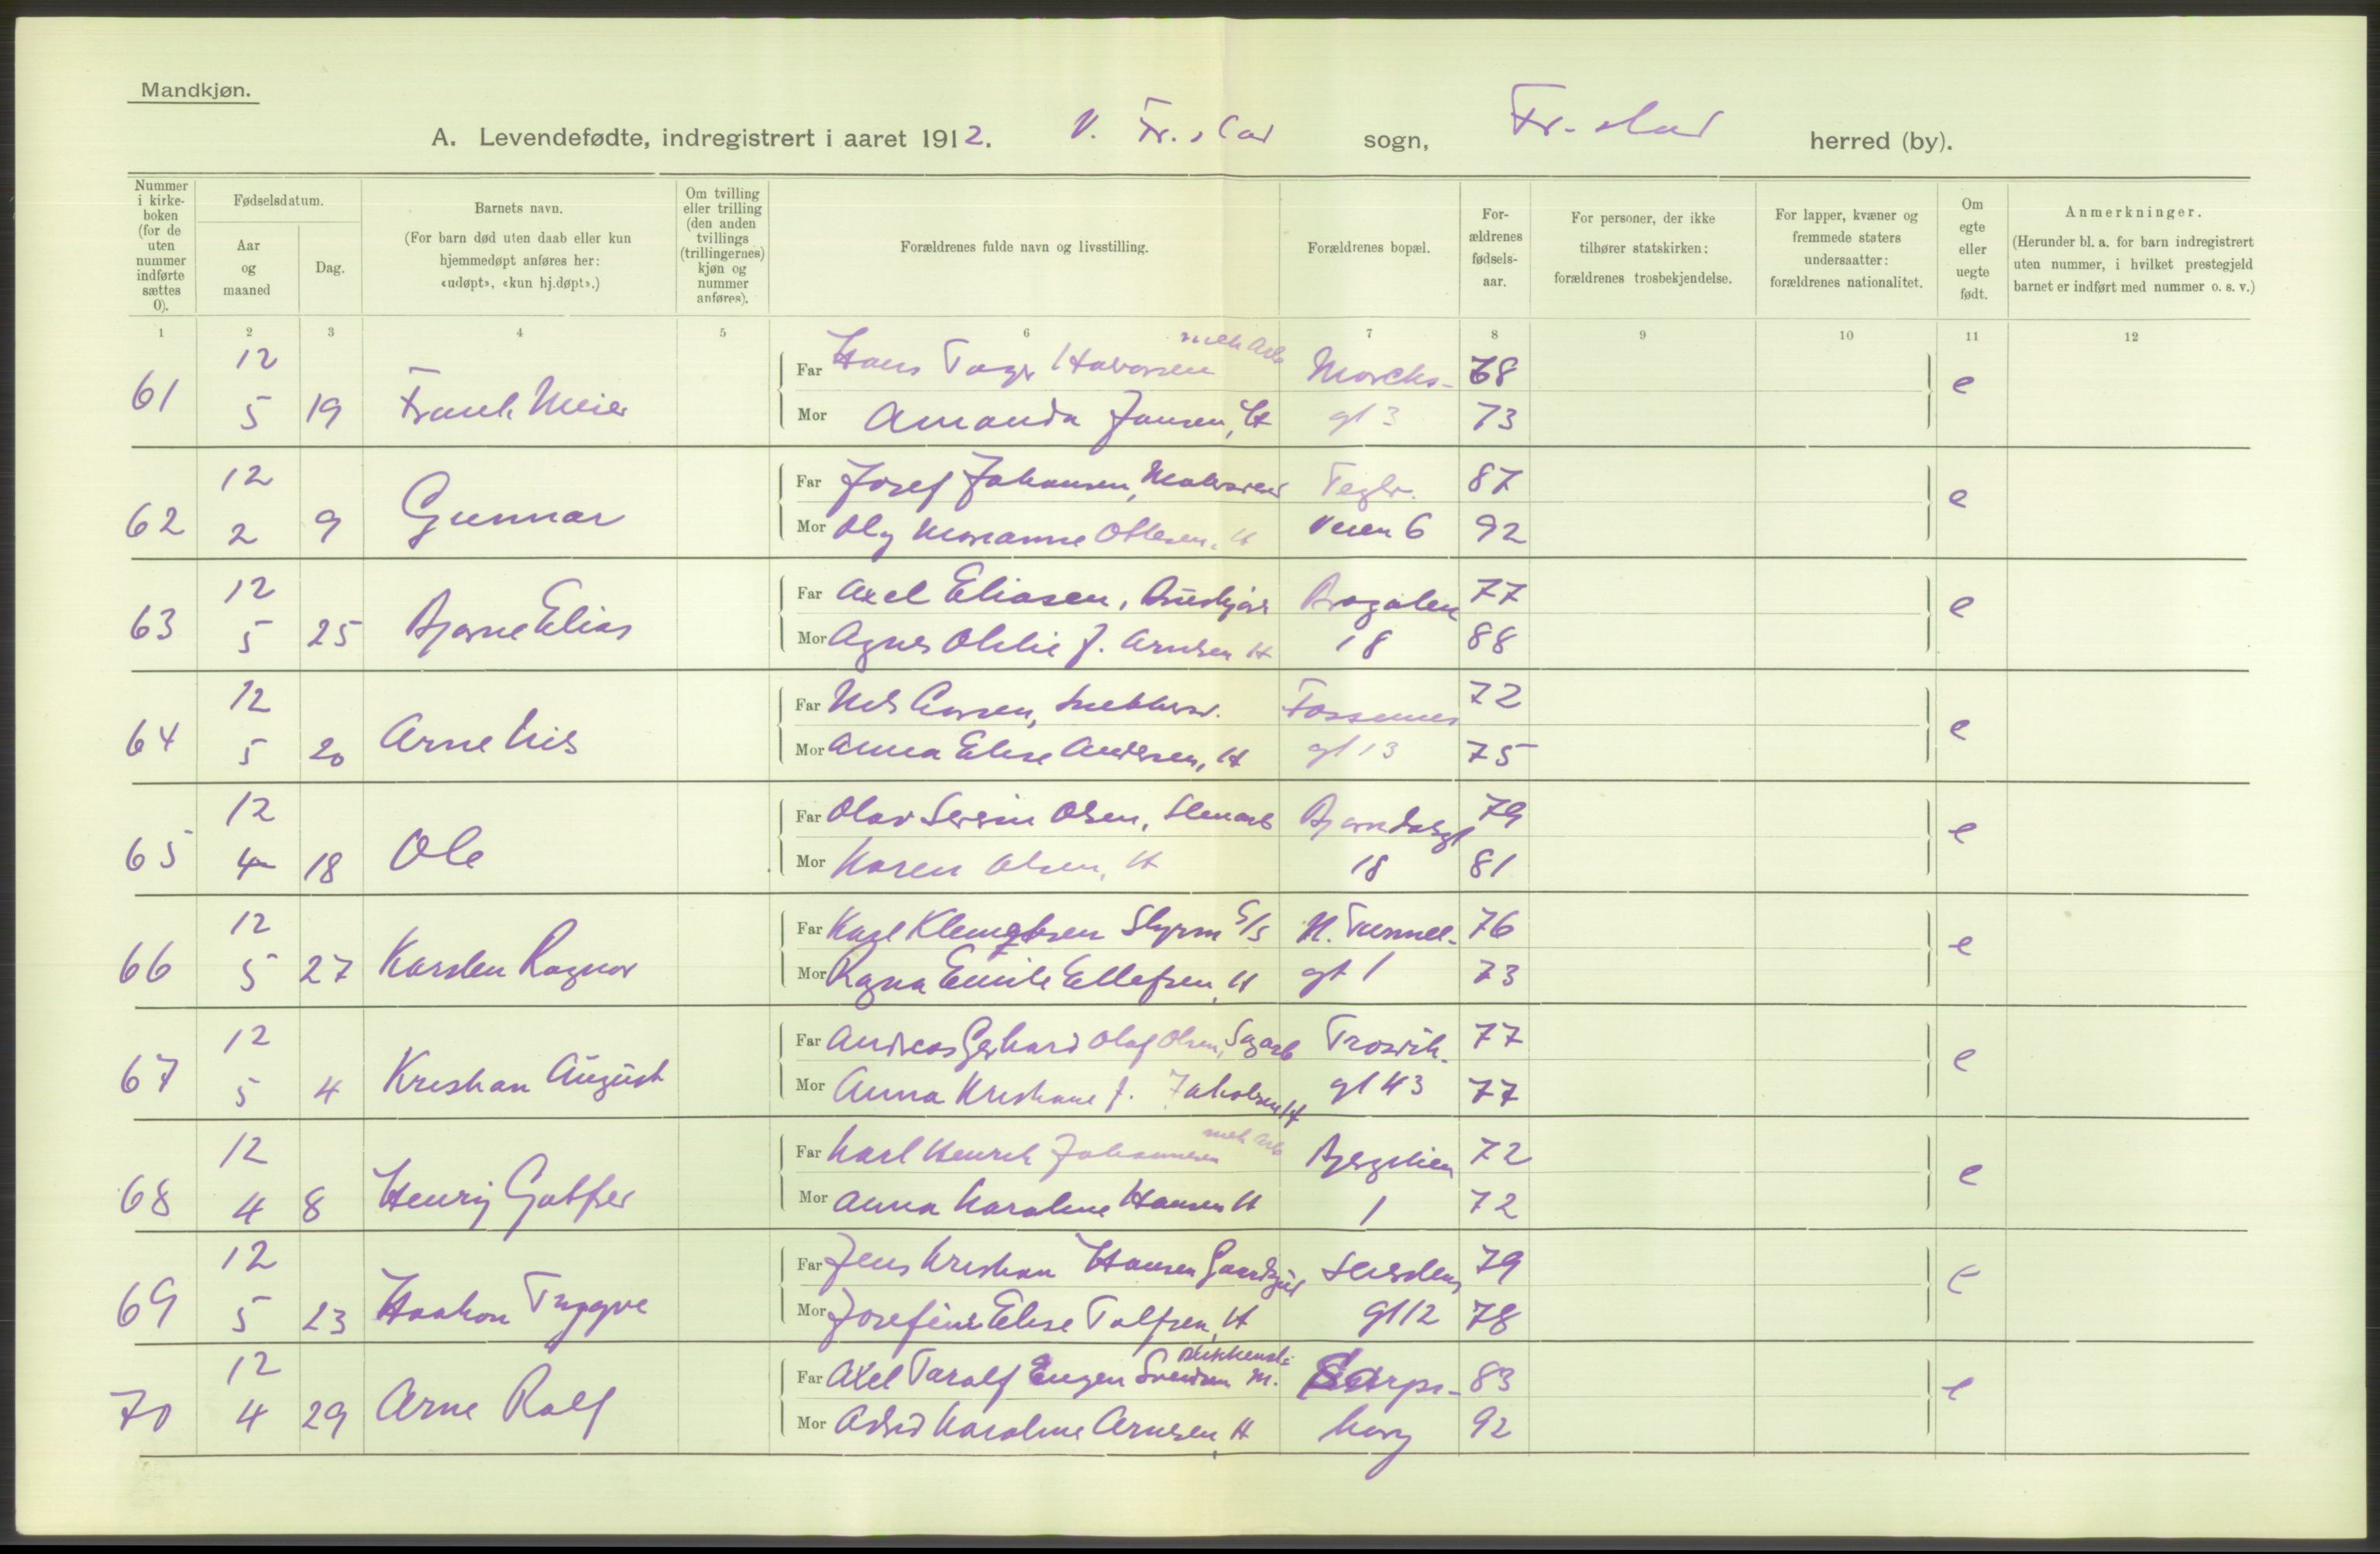 Mandkjøn.
A. Levendefødte, indregistrert i aaret 1912. V. Fr.stad sogn, Fr-stad herred (by).
Nummer i kirke-boken (for de uten nummer indførte sættes 0).
Fødselsdatum.
Aar og maaned
Dag.
Barnets navn.
(For barn død uten daab eller kun hjemmedøpt anføres her: «udøpt», «kun hj.døpt».)
Om tvilling eller trilling (den anden tvillings (trillingernes) kjøn og nummer anføres).
Forældrenes fulde navn og livsstilling.
Forældrenes bopæl.
For-ældrenes fødsels-aar.
For personer, der ikke tilhører statskirken: forældrenes trosbekjendelse.
For lapper, kvæner og fremmede staters undersaatter: forældrenes nationalitet.
Om egte eller uegte født.
Anmerkninger.
(Herunder bl. a. for barn indregistrert uten nummer, i hvilket prestegjeld barnet er indført med nummer o. s. v.)
1 2 3 4 5 6 7 8 9 10 11 12
61 12 5 19 Frank Meier
Far Hans Tage Halvorsen mek Arb Morchs- 68 e
Mor Amanda Jansen, H gt 3 73
62 12 2 9 Gunnar
Far Josef Johansen, Teglv. 87 e
Mor Oly Marianne Ottesen, H veien 6 92
63 12 5 25 Bjarne Elias
Far Axel Eliasen, 77 e
Mor Agnes Otilie J. Arntsen H 18 88
64 12 5 20 Arne Nils
Far Nils Larsen, Snekkersv. Fossumes 72 e
Mor Anna Elise Andersen, H gt 13 75
65 12 4 18 Ole
Far Olav Severin Olsen, Stenarb Bjarndalsgt 79 e
Mor Karen Olsen, H 18 81
66 12 5 27 Karsten Ragnar
Far Karl Klemetsen Styrm S/S N. Tunnel- 76 e
Mor Ragna Emilie Ellefsen, H gt 1 73
67 12 5 4 Kristian August
Far Andreas Gerhard Olaf Olsen, Sagarb Trosvik- 77 e
Mor Anna Kristiane J. Jakobsen H gt 43 77
68 12 4 8 Henry Gotfer
Far Karl Henrik Johannesen mek Arb Bjergelien 72 e
Mor Anna Karoline Hansen H 1 72
69 12 5 23 Haakon Trygve
Far Jens Kristian Hansen 79 e
Mor Josefine Elise Tolfsen, H gt 12 78
70 12 4 29 Arne Ralf
Far Axel Taralf Eugen Svendsen M. Sarps- 83 e
Mor Astrid Karoline Arnesen, H borg 92